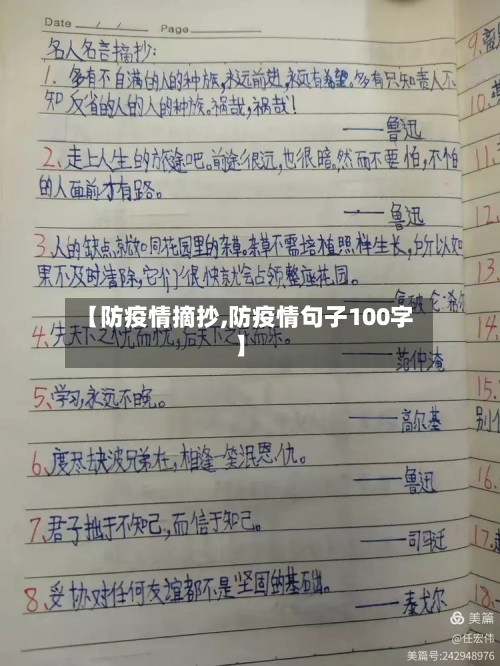 Date  /  /   Page
名人名言摘抄：
1. 多有不自满的人的种族,永远前进,永远有希望。多有只知责人不
知反省的人的人的种族。祸哉,祸哉!
——鲁迅
2、走上人生的旅途吧。前途很远,也很暗。然而不要怕,不怕
的人面前才有路。
——鲁迅
3.人的缺点就如同花园里的杂草。杂草不需培植照样生长,所以如
果不及时清除,它们很快就会占领整座花园。
【防疫情摘抄,防疫情句子100字
】
4.先天下之忧而忧,后天下之乐而乐。
——范仲淹
5、学习永远不晚。
——高尔基
6、度尽劫波兄弟在,相逢一笑泯恩仇。
——鲁迅
7、君子拙于不知己,而信于知己。
——司马迁
8、妥协对任何友谊都不是坚固的基础。
——泰戈尔
9.
10.
11.
12.
13.
14.
15.
别
16.
17.
18.
美篇
@任宏伟
美篇号:242948976